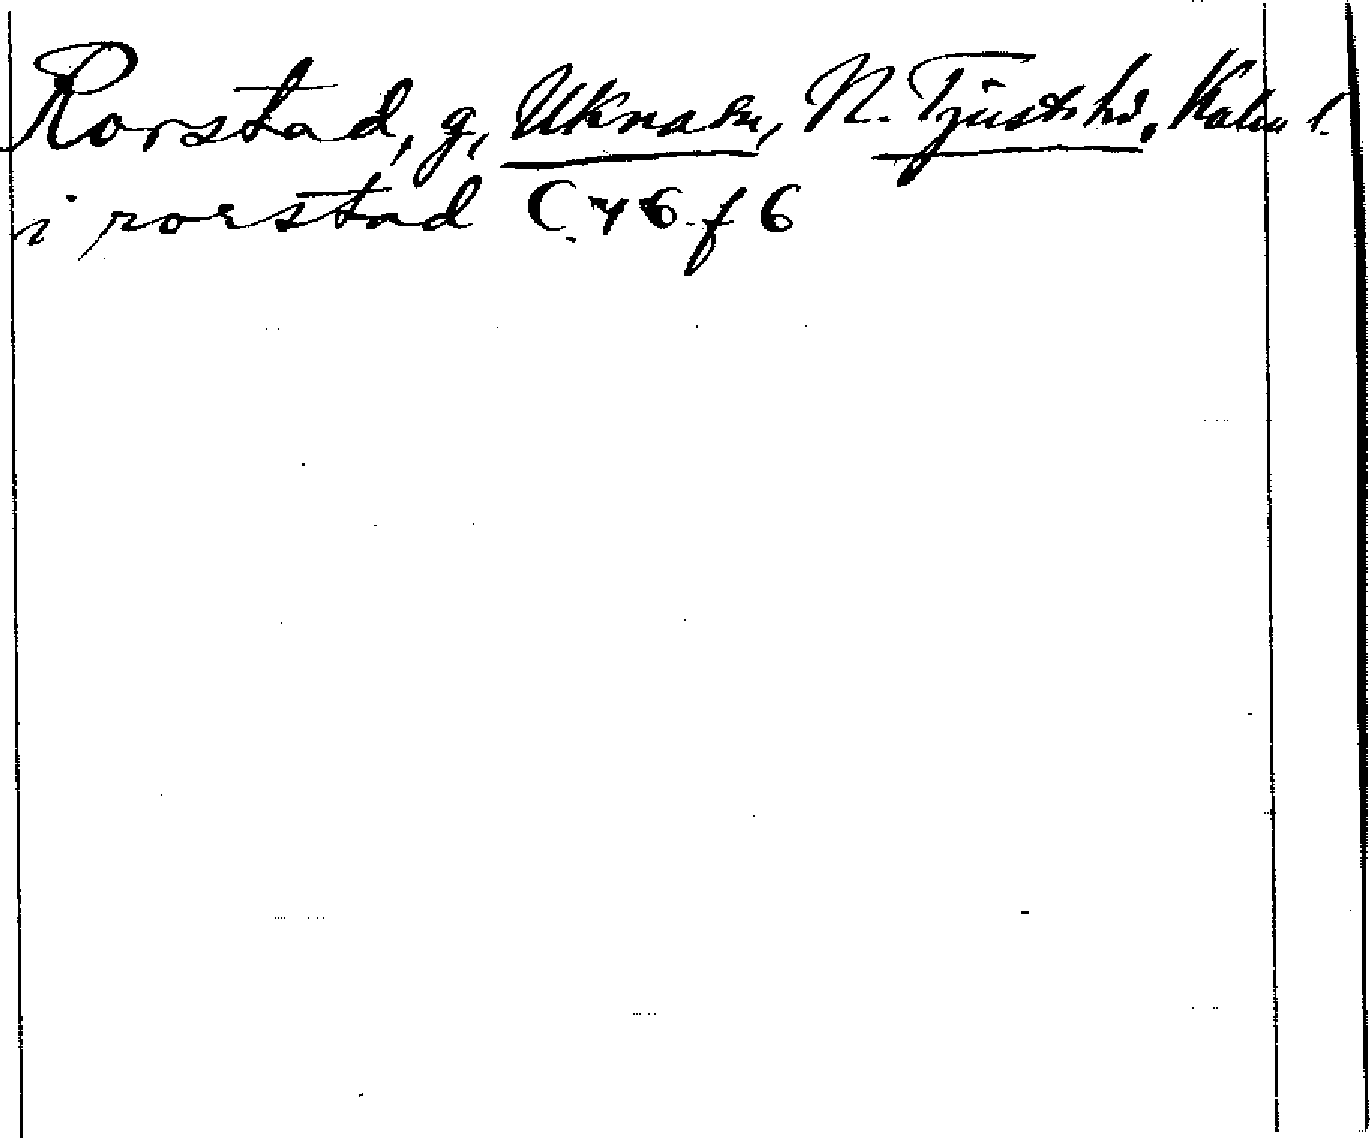 Rorstad, g, Ukna sn, N. Tjusts hd, Kalm l.
i rorstad C 46 f 6